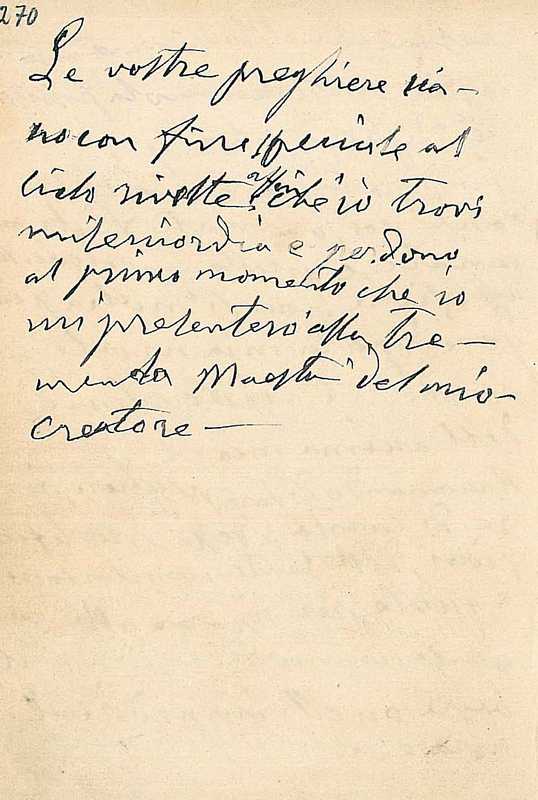 270
Le vostre preghiere sia-
no con fine speciale al
cielo rivolte affin che io trovi
misericordia e perdono
al primo momento che io
mi presenterò alla tre-
menda Maestà del mio
creatore